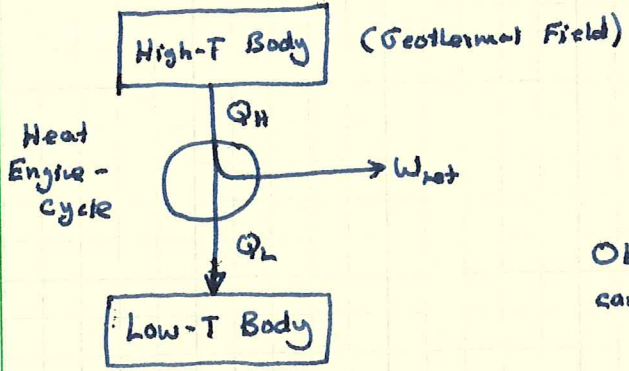 High-T Body (Geothermal Field)
Heat
Engine-
Cycle
QH
Wnet
QL
Low-T Body